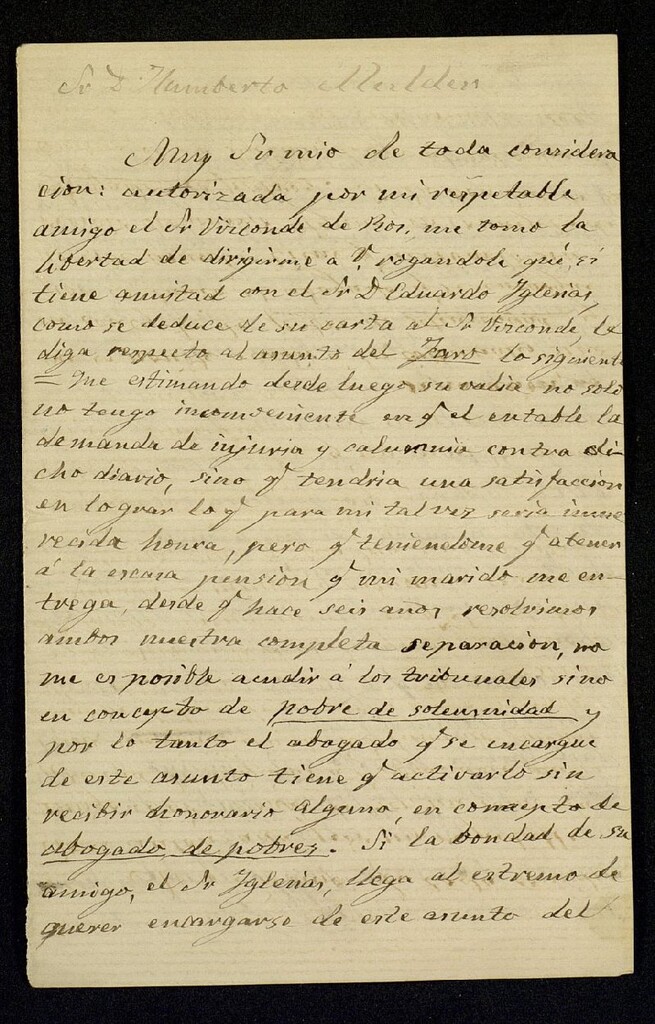 Sr D. Humberto
Muy Sr mio de toda considera
cion: autorizada por mi respetable
amigo el Sr Vizconde de Ros, me tomo la
libertad de dirigirme a V. rogandole que, si
tiene amistad con el Sr D Eduardo Iglesias,
como se deduce de su carta al Sr Vizconde, le
diga respecto al asunto del Faro lo siguiente
= Que estimando desde luego su valia no solo
no tengo inconveniente en q el entable la
demanda de injuria y calumnia contra di-
cho diario, sino q tendria una satisfaccion
en lograr lo q para mi tal vez seria inme
recida honra, pero q teniendome q atener
á la escasa pension q mi marido me en-
trega, desde q hace seis años resolvimos
ambos nuestra completa separacion, no
me es posible acudir á los tribunales sino
en concepto de pobre de solemnidad y
por lo tanto el abogado q se encargue
de este asunto tiene q activarlo sin
recibir honorario alguno, en concepto de
abogado de pobres. Si la bondad de su
amigo, el Sr Iglesias, llega al estremo de
querer encargarse de este asunto del